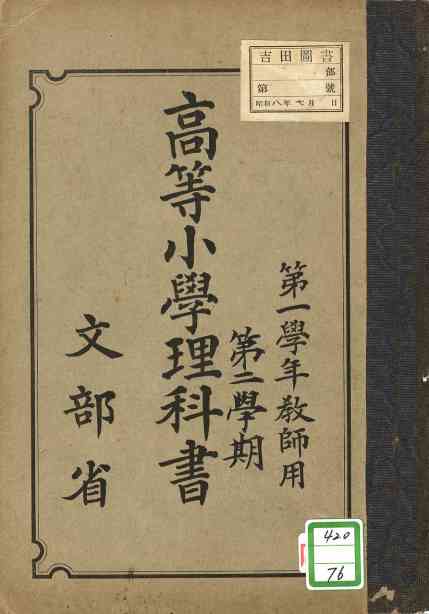 吉田圖書
部
第 號
昭和八年七月 日
第一學年教師用
第二學期
高等小學理科書
文部省
420
76